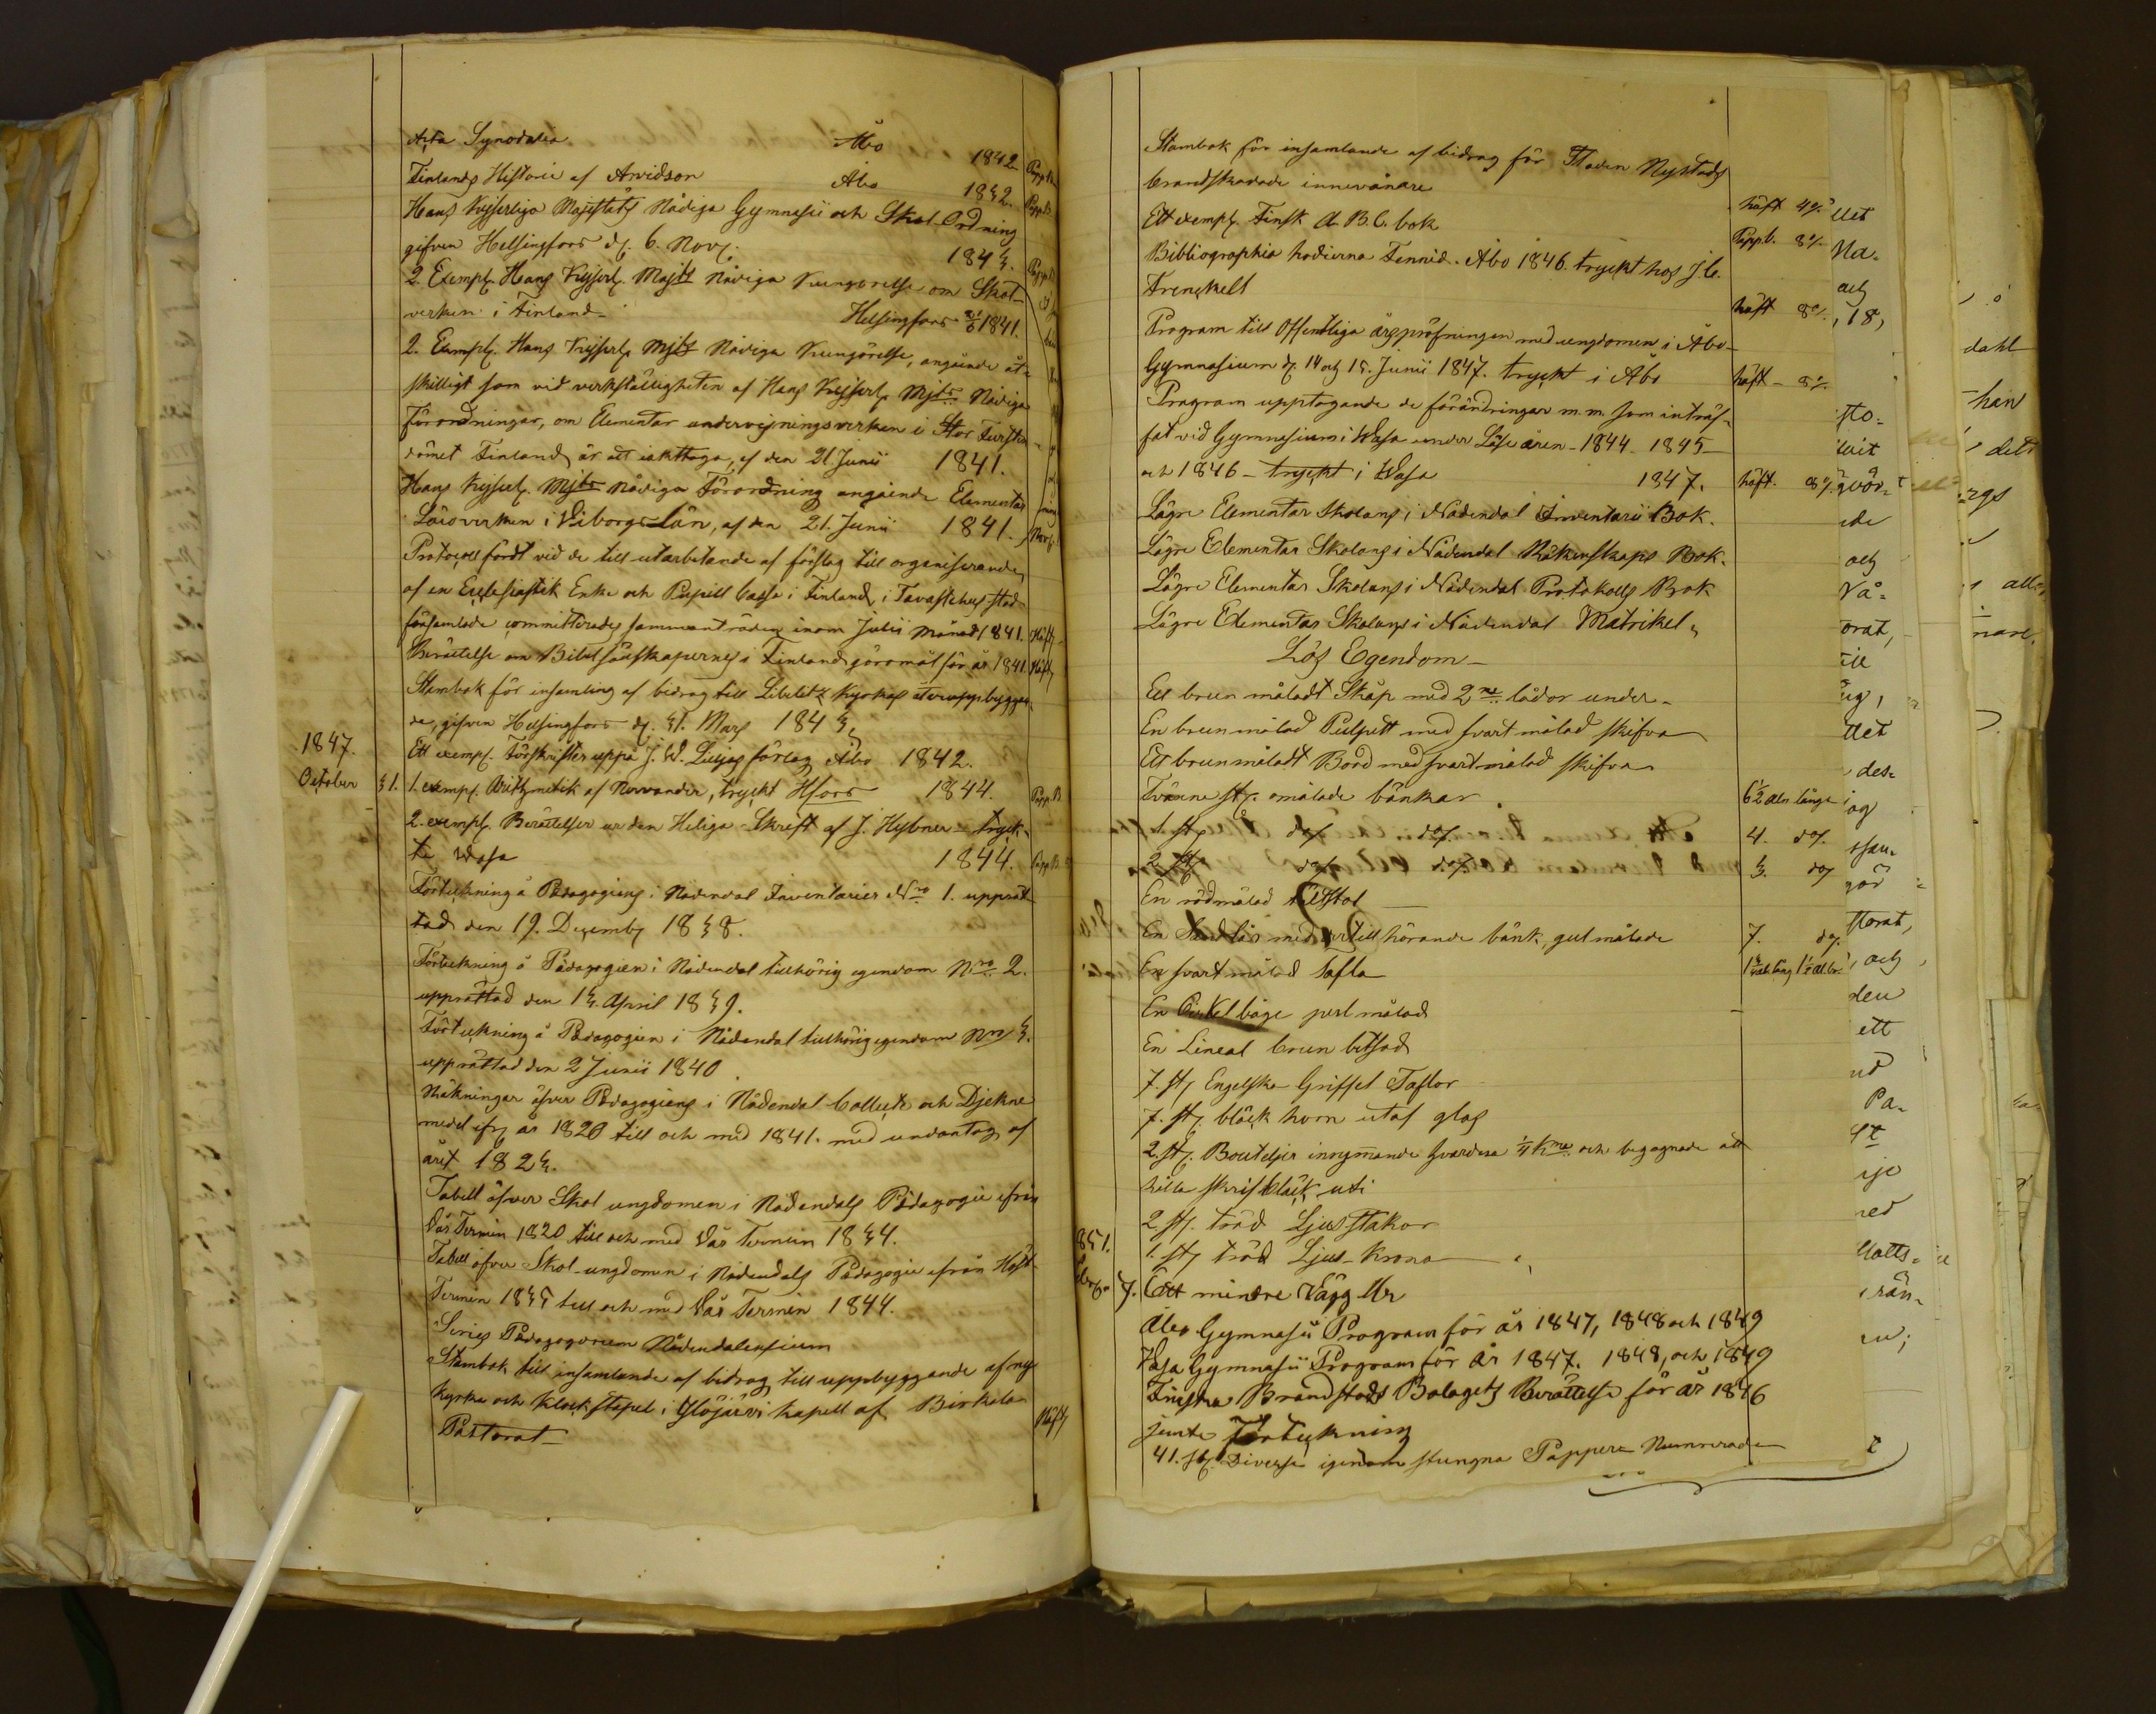 Acta Synodalia Åbo 1842 Papp. B.
Finlands Historie af Arvidson Åbo 1832. Papp. B.
Hans Kejserliga Majestäts Nådiga Gymnasii och Skol-Ordning
gifven Helsingfors d. 6. Nov. 1843. Papp. B.
2. Exempl. Hans Kejserl. Majts Nådiga Kungörelse om Skol-
verken i Finland Helsingfors 21/6 1841.
2. Exempl. Hans Kejserl. Mjts Nådiga Kungörelse, angående åt-
skilligt som vid verkställigheten af Hans Kejserl. Mjts Nådiga
Förordningar, om Elementar undervisningsverken i Stor Fursten-
dömet Finland, är att iakttaga, af den 21. Junii 1841.
Hans Kejserl. Mjts nådiga Förordning angående Elementar
Läroverken i Viborgs Län, af den 21. Junii 1841.
Protocoll fördt vid de till utarbetande af förslag till organiserande
af en Ecclesiastik Enke och Pupill Cassa i Finland, i Tavastehus stad
församlade committerades sammanträden inom Julii månad 1841. Häft.
Berättelse om Bibelsällskapernes i Finland göromål för år 1841. Häft.
Stambok för insamling af bidrag till Libelitz Kyrkas återuppbyggan-
de, gifven Helsingfors d. 31. Mars 1843,
1847. Ett exempl. Förskrifter uppå J. W. Liljas förlag Åbo 1842.
October 31. 1. exempl. Arithmetik af Nervander, tryckt Hfors 1844. Papp. B.
2. exempl. Berättelser ur den Heliga Skrift af J. Hybner - tryck-
te Wasa 1844. Papp. B.
Förteckning å Pedagogiens i Nådendal Inventarier Nro 1. upprät-
tad den 19. Decemb. 1838.
Förteckning å Pedagogien i Nådendal tillhörig egendom Nro 2.
upprättad den 13. April 1839.
Förteckning å Pedagogien i Nådendal tillhörig egendom Nro 3.
upprättad den 2 Junii 1840.
Räkningar öfver Pedagogiens i Nådendal Collect och Djekne
medel ifr. år 1820 till och med 1841. med undantag af
året 1823.
Tabell öfver Skol ungdomen i Nådendals Pedagogie ifrån
Vår Termin 1820 till och med Vår Termin 1834.
Tabell öfver Skol-ungdomen i Nådendals Pedagogie ifrån Höst-
Termin 1835 till och med Vår Termin 1844.
Series Pædagogorum Nådendalensium
Stambok till insamlande af bidrag till uppbyggande af ny
kyrka och Klockstapel i Ylöjärvi Kapell af Birkala
Pastorat Häft.
Stambok för insamlande af bidrag för Staden Nystads
brandskadade innevånare häft 4:o
Ett exempl. Finsk A.B.C. bok Papp. b. 8:o
Bibliographia hodierna Fennia. Åbo 1846. tryckt hos J. C.
Frenckell häft 8:o
Program till Offentliga årspröfningen med ungdomen i Åbo
Gymnasium d. 14 och 15. Junii 1847. tryckt i Åbo häft 8:o
Program upptagande de förändringar m. m. som inträf-
fat vid Gymnasium i Wasa under Läse åren 1844 - 1845
och 1846 - tryckt i Wasa 1847. häft. 8:o
Lägre Elementar Skolans i Nådendal Inventarii Bok.
Lägre Elementar Skolans i Nådendal Räkenskaps Bok.
Lägre Elementar Skolans i Nådendal Protokolls Bok
Lägre Elementar Skolans i Nådendal Matrikel.
Lös Egendom
Ett brun måladt Skåp med 2ne lådor under.
En brun målad Pulpett med svart målad skifva
Ett brun måladt Bord med svart målad skifva
Tvänne st. omålade bänkar 6 1/2 aln långa
1. st. do. do. 4. do.
2 st. do. do. 3. do.
En rödmålad stol
En med tillhörande bänk, gul målade 7. do.
En svart målad Tafla
En Cirkel båge perl målad
En Lineal brun betsad
7. st. Engelska Griffel Taflor
7. st. bläck horn utaf glas
2. st. Bouteljer inrymmande hvardera 1/4 Kna och begagnade att
hålla skrifbläck uti
2. st. träd Ljusstakar
1851. 1. st. träd Ljus-krona
7. Ett mindre Vägg Ur
Åbo Gymnasii Program för år 1847, 1848 och 1849
Vasa Gymnasii Program för år 1847. 1848, och 1849
Finska Brandstods Bolagets Berättelse för år 1846
jemte Förteckning
41. st. Diverse igenom stungna Papper Numrerade